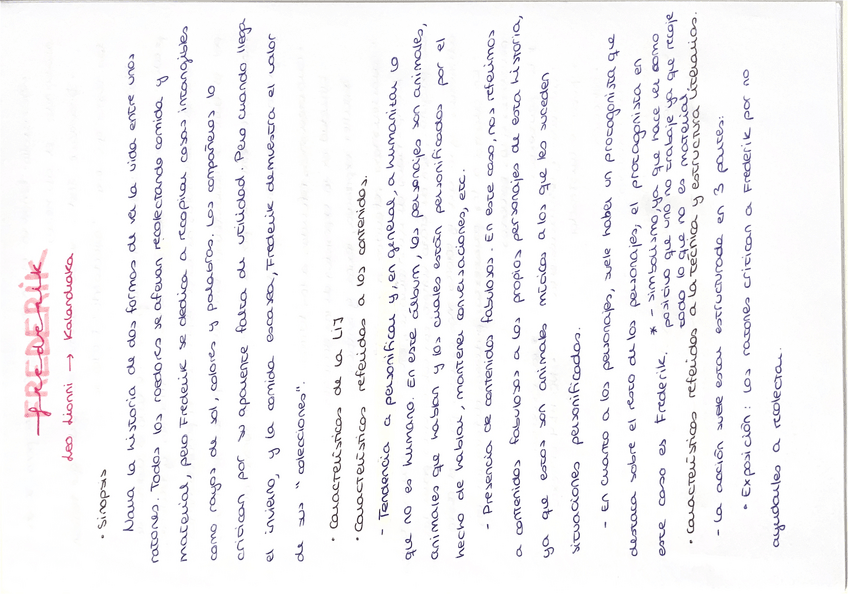 FREDERIK
frederik
Leo Lionni → Kalandraka
• Sinopsis
Narra la historia de dos formas de ver la vida entre unos
ratones. Todos los roedores se afanan recolectando comida y
material, pero Frederik se dedica a recopilar cosas intangibles
como rayos de sol, colores y palabras. Los compañeros lo
critican por su aparente falta de utilidad. Pero cuando llega
el invierno, y la comida escasea, Frederik demuestra el valor
de sus "colecciones".
• Características de la LIJ
• Características referidas a los contenidos.
- Tendencia a personificar y, en general, a humanizar lo
que no es humano. En este álbum, los personajes son animales,
animales que hablan y los cuales están personificados por el
hecho de hablar, mantener conversaciones, etc.
- Presencia de contenidos fabulosos. En este caso, nos referimos
a contenidos fabulosos a los propios personajes de esta historia,
ya que estos son animales míticos a los que les suceden
situaciones personificadas.
- En cuanto a los personajes, suele haber un protagonista que
destaca sobre el resto de los personajes, el protagonista en
este caso es Frederik.
* - simbolismo, ya que hace ver como
positivo que uno no trabaje ya que recoje
todo lo que no es material.
• Características referidas a la técnica y estructura literarias.
- La acción suele estar estructurada en 3 partes:
• Exposición: los ratones critican a Frederik por no
ayudarles a recolectar.